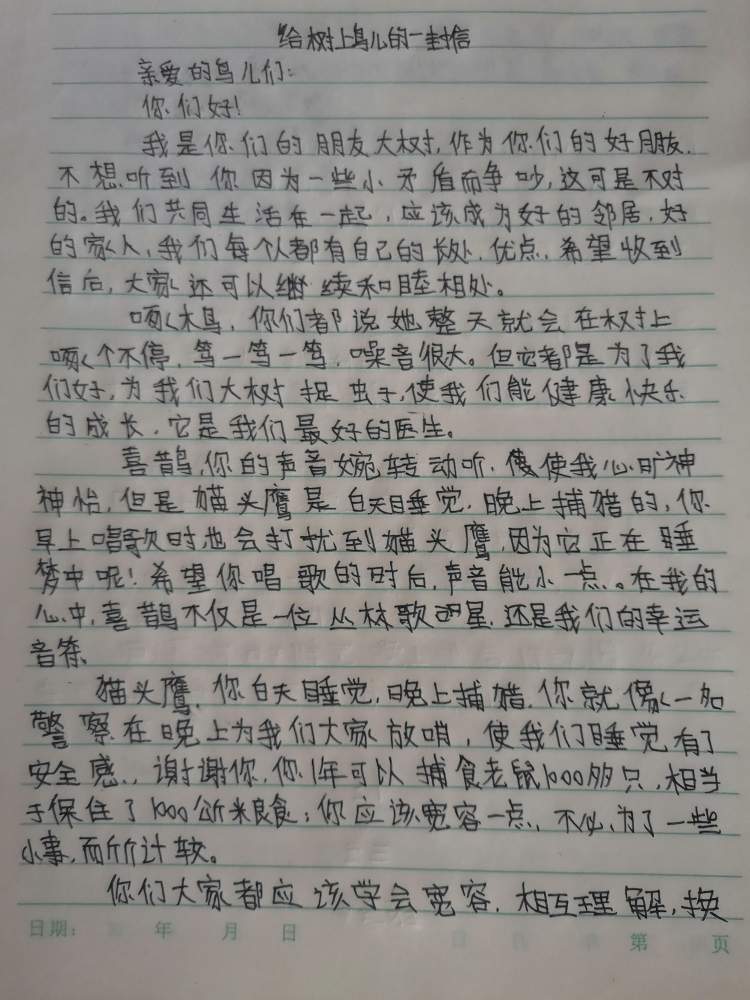 给树上鸟儿的一封信
亲爱的鸟儿们：
你们好！
我是你们的朋友大树，作为你们的好朋友，
不想听到你因为一些小矛盾而争吵，这可是不对
的。我们共同生活在一起，应该成为好的邻居，好
的家人，我们每个人都有自己的长处、优点，希望收到
信后，大家还可以继续和睦相处。
啄木鸟，你们都说她整天就会在树上
啄个不停，笃一笃一笃，噪音很大。但它都是为了我
们好，为我们大树捉虫子，使我们能健康快乐
的成长，它是我们最好的医生。
喜鹊，你的声音婉转动听，像使我心旷神
神怡，但是猫头鹰是白天睡觉，晚上捕猎的，你
早上唱歌时也会打扰到猫头鹰，因为它正在睡
梦中呢！希望你唱歌的时后，声音能小一点。在我的
心中，喜鹊不仅是一位丛林歌明星，还是我们的幸运
音符、
猫头鹰，你白天睡觉，晚上捕猎，你就像一如
警察在晚上为我们大家放哨，使我们睡觉有了
安全感，谢谢你，你1年可以捕食老鼠1000多只，相当
于保住了1000公斤粮食；你应该宽容一点，不必为了一些
小事，而斤斤计较。
你们大家都应该学会宽容，相互理解，换
日期： 年 月 日
第 页